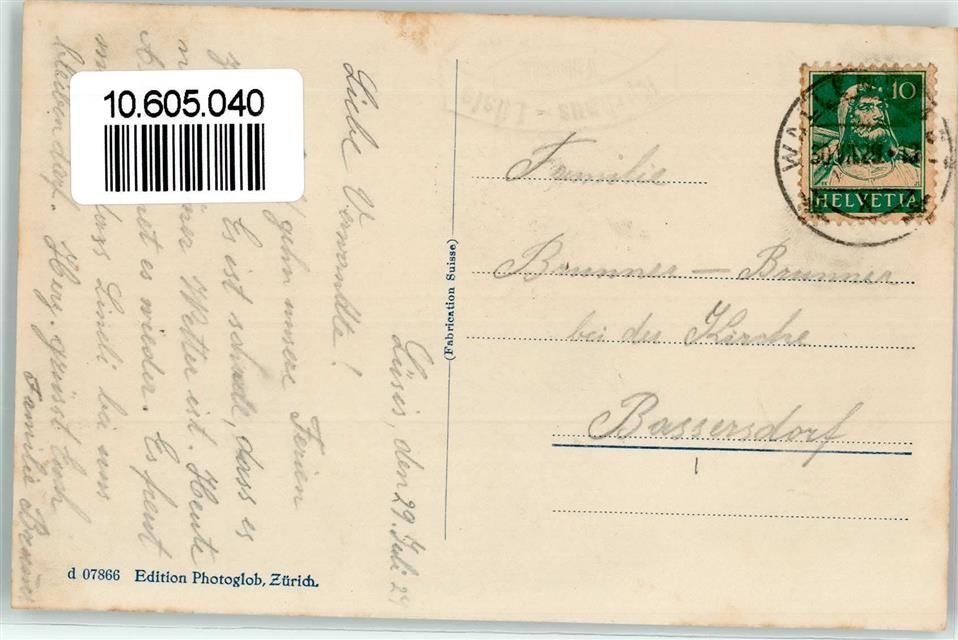 10.605.040
Lüsis, den 29. Juli 29
Liebe Verwandte!
gehn unsere Ferien
Es ist schade, dass es
Wetter ist. Heute
es wieder. Es freut
dass Lindi bei uns
bleiben darf. Herz. grüsst Euch
Familie Brunner
d 07866 Edition Photoglob, Zürich.
(Fabrication Suisse)
10
HELVETIA
Familie
Brunner — Brunner
bei der Kirche
Bassersdorf